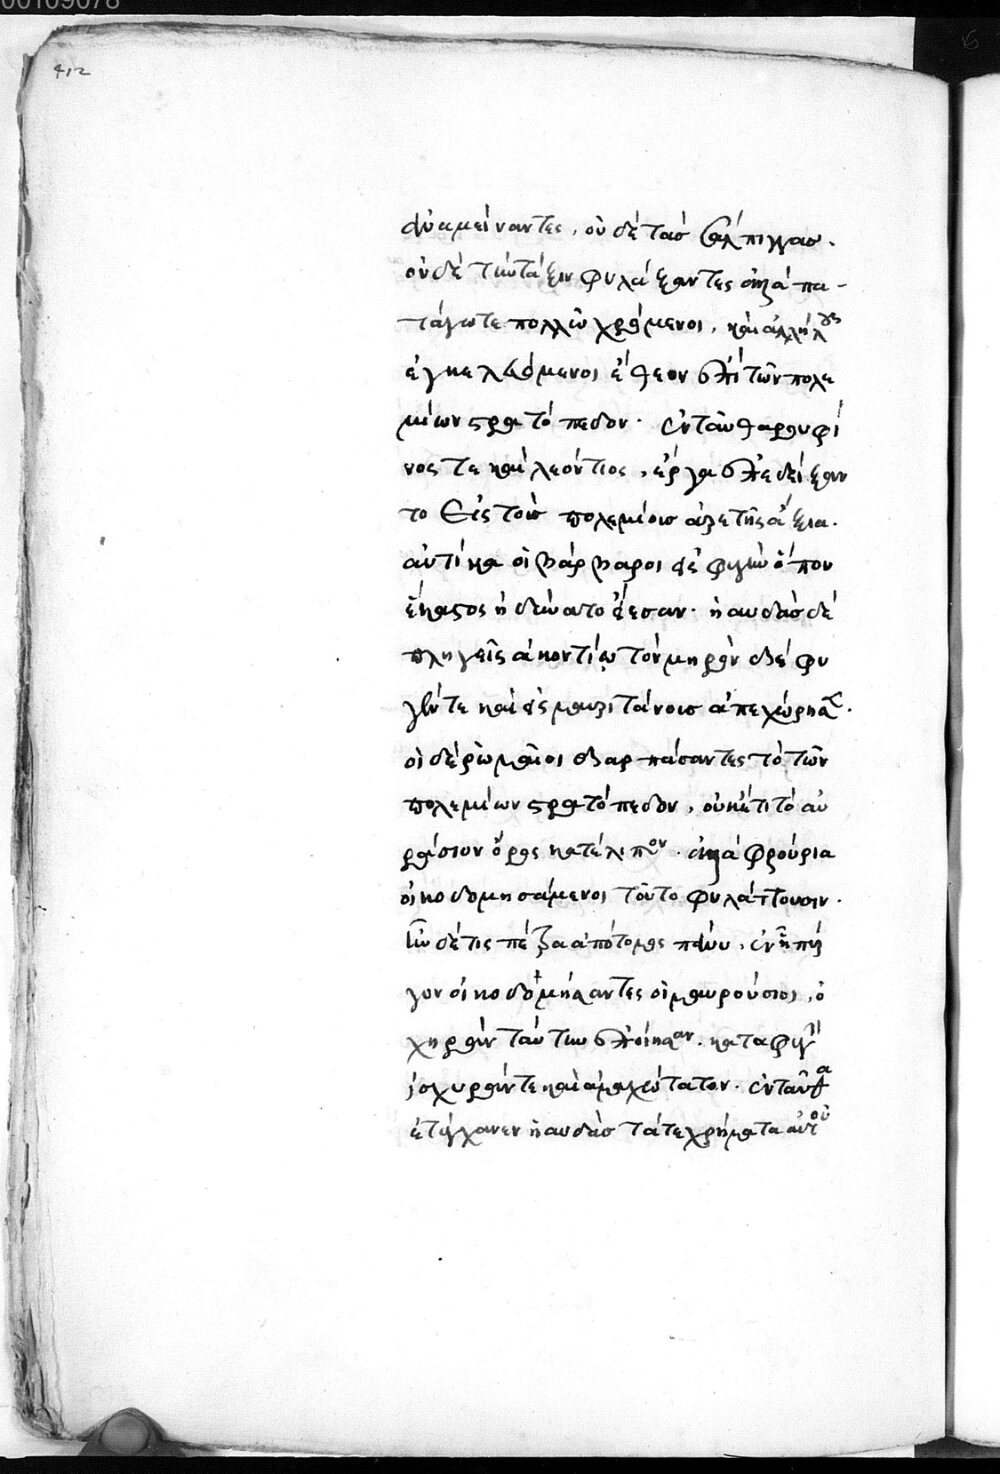 00109078
412
ἀναμείναντες, οὐδὲ τὰσ σάλπιγγασ.
οὐδὲ τὴν τάξιν φυλάξαντες ἀλλὰ πα-
τάγωτε πολλῶ χρώμενοι, καὶ ἀλλήλοις
ἐγκελευόμενοι ἔθεον ἐπὶ τῶν πολε
μίων στρατόπεδον. ἐνταῦθα ρουφῖ
νος τε καὶ λεόντιος, ἔργα ἐπεδείξαν
το εἰς τοὺσ πολεμίουσ ἀρετῆς ἄξια.
αὐτίκα οἱ βάρβαροι ἐς φυγὴν ὅπου
ἕκαστος ἠδύνατο ἵεσαν. ἠαυδὰσ δὲ
πληγεὶς ἀκοντίω τὸν μηρὸν διέφυ
γέν τε καὶ ἐς μαυριτάνουσ ἀπεχώρησε.
οἱ δὲ ῥωμαῖοι διαρπάσαντες τὸ τῶν
πολεμίων στρατόπεδον, οὐκέτι τὸ αὐ
ράσιον ὄρος κατέλιπον. ἀλλὰ φρούρια
οἰκοδομησάμενοι τοῦτο φυλάττουσιν.
ἦν δέ τις πέτρα ἀπότομος πάνυ, ἐν ἧ πύρ
γον οἰκοδομήσαντες οἱ μαυρούσιοι, ὀ
χηρὰν ταύτην ἐποίησαν. καταφυγὴ
ἰσχυράν τε καὶ ἀμαχώτατον. ἐνταῦθα
ἐτύγχανεν ἠαυδὰσ τά τε χρήματα αὐτοῦ